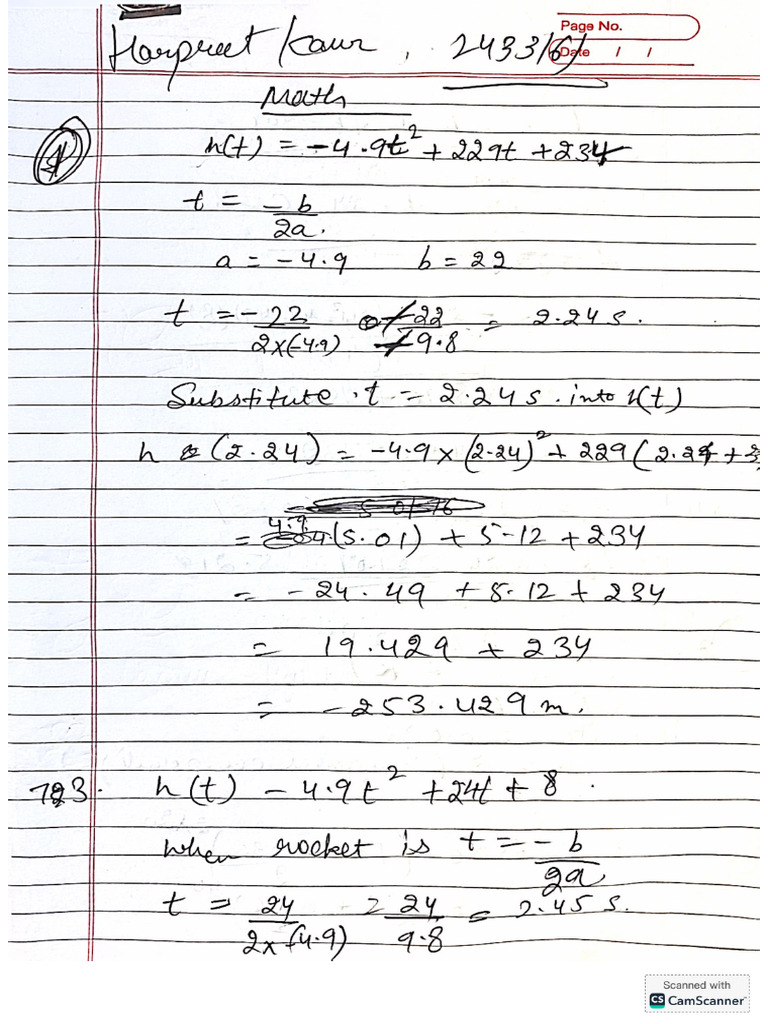 Page No.
Harpreet Kaur, 2433161
Date / /
Math
h(t) = -4.9t² + 229t + 234
t = -b
2a.
a = -4.9 b = 22
t = -22 -22 = 2.24 s.
2x(-4.9) -9.8
Substitute t = 2.24 s. into h(t)
h (2.24) = -4.9 x (2.24)² + 229 (2.24 +
= 4.9 (5.01) + 5-12 + 234
= -24.49 + 5.12 + 234
= 19.429 + 234
= -253.429 m.
h(t) - 4.9t² + 24t + 8.
when rocket is t = -b
2a
t = 24 = 24 = 2.45 s.
2x(-4.9) 9.8
Scanned with
CS CamScanner